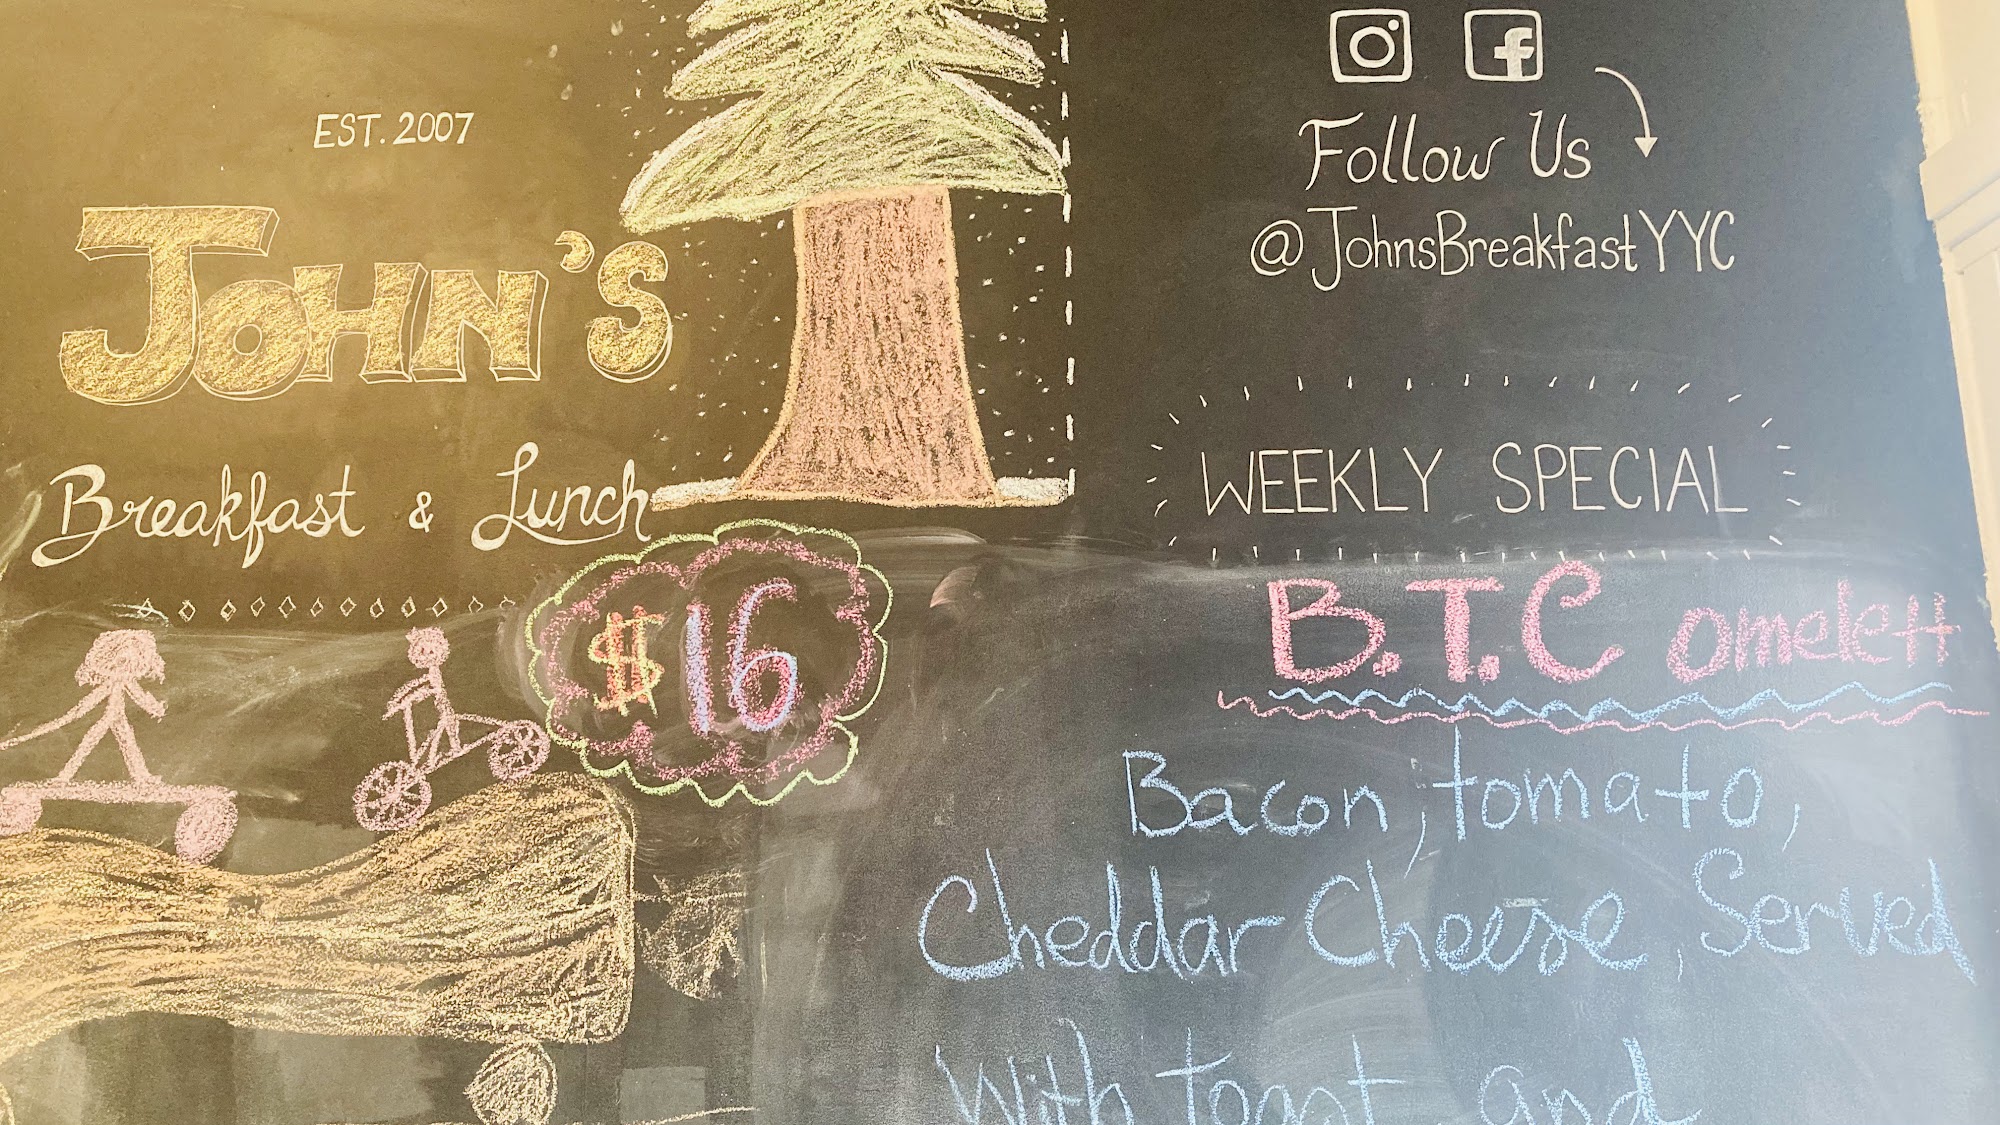 EST. 2007
JOHN'S
Breakfast & Lunch
$16
Follow Us
@JohnsBreakfastYYC
WEEKLY SPECIAL
B.T.C omelett
Bacon, tomato,
Cheddar Cheese, Served
With toast and